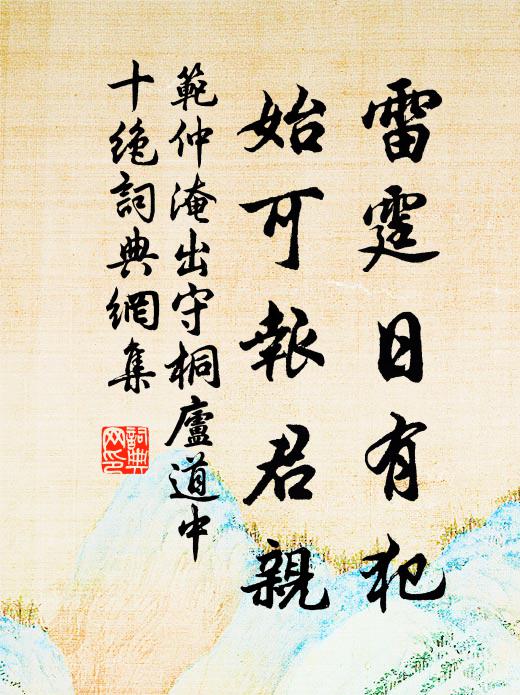 雷霆日有犯
始可報君親
範仲淹出守桐廬道中
十绝詞典網集
詞典
网印